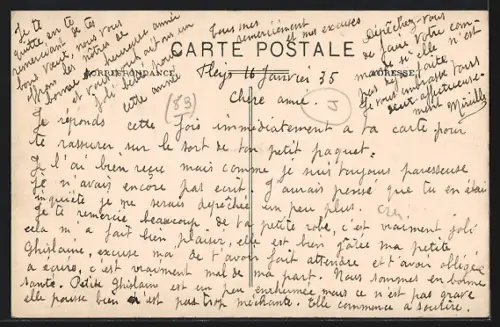 Je te
quitte en te
remerciant de tes
bons vœux nous vous
offrons les nôtres de
bonne et heureuse année
et vous souhaitant un
joli bébé pour
cette année
Tous mes
remerciement
et mes excuses
CARTE POSTALE
CORRESPONDANCE
ADRESSE
Dépêchez-vous
de faire votre com-
mande si elle n'est
pas déjà faite
Je vous embrasse tous
deux affectueuse-
ment Mireille
Pleys 16 Janvier 35
(83)
J
Chère amie.
Je réponds cette fois immédiatement a ta carte pour
te rassurer sur le sort de ton petit paquet.
Je l'ai bien reçue mais comme je suis toujours paresseuse
je n'avais encore pas ecrit. J'aurais pensé que tu en étais
inquiète je me serais depêchée un peu plus.
Je te remercie beaucoup de ta petite robe, c'est vraiment joli
cela m'a fait bien plaisir, elle est bien gâtée ma petite
Ghislaine, excuse ma de t'avoir fait attendre et t'avoir obligée
a écrire, c'est vraiment mal de ma part. Nous sommes en bonne
santé. Petite Ghislain est un peu enrhumée mais ce n'est pas grave
elle pousse bien n'est pas trop méchante. Elle commence a sourire.